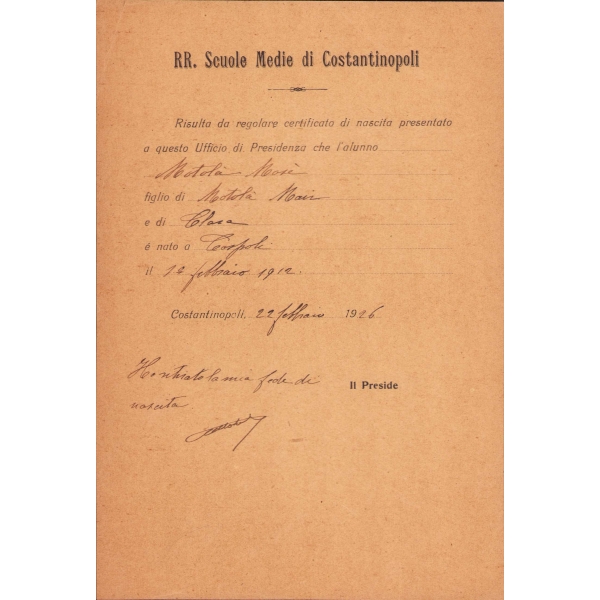 RR. Scuole Medie di Costantinopoli
Risulta da regolare certificato di nascita presentato
a questo Ufficio di Presidenza che l'alunno
Motolà Mosè
figlio di Motolà Mair
e di Clara
é nato a C/nopoli
il 12 febbraio 1912.
Costantinopoli, 22 febbraio 1926
Ho ritirato la mia fede di
nascita.
Il Preside